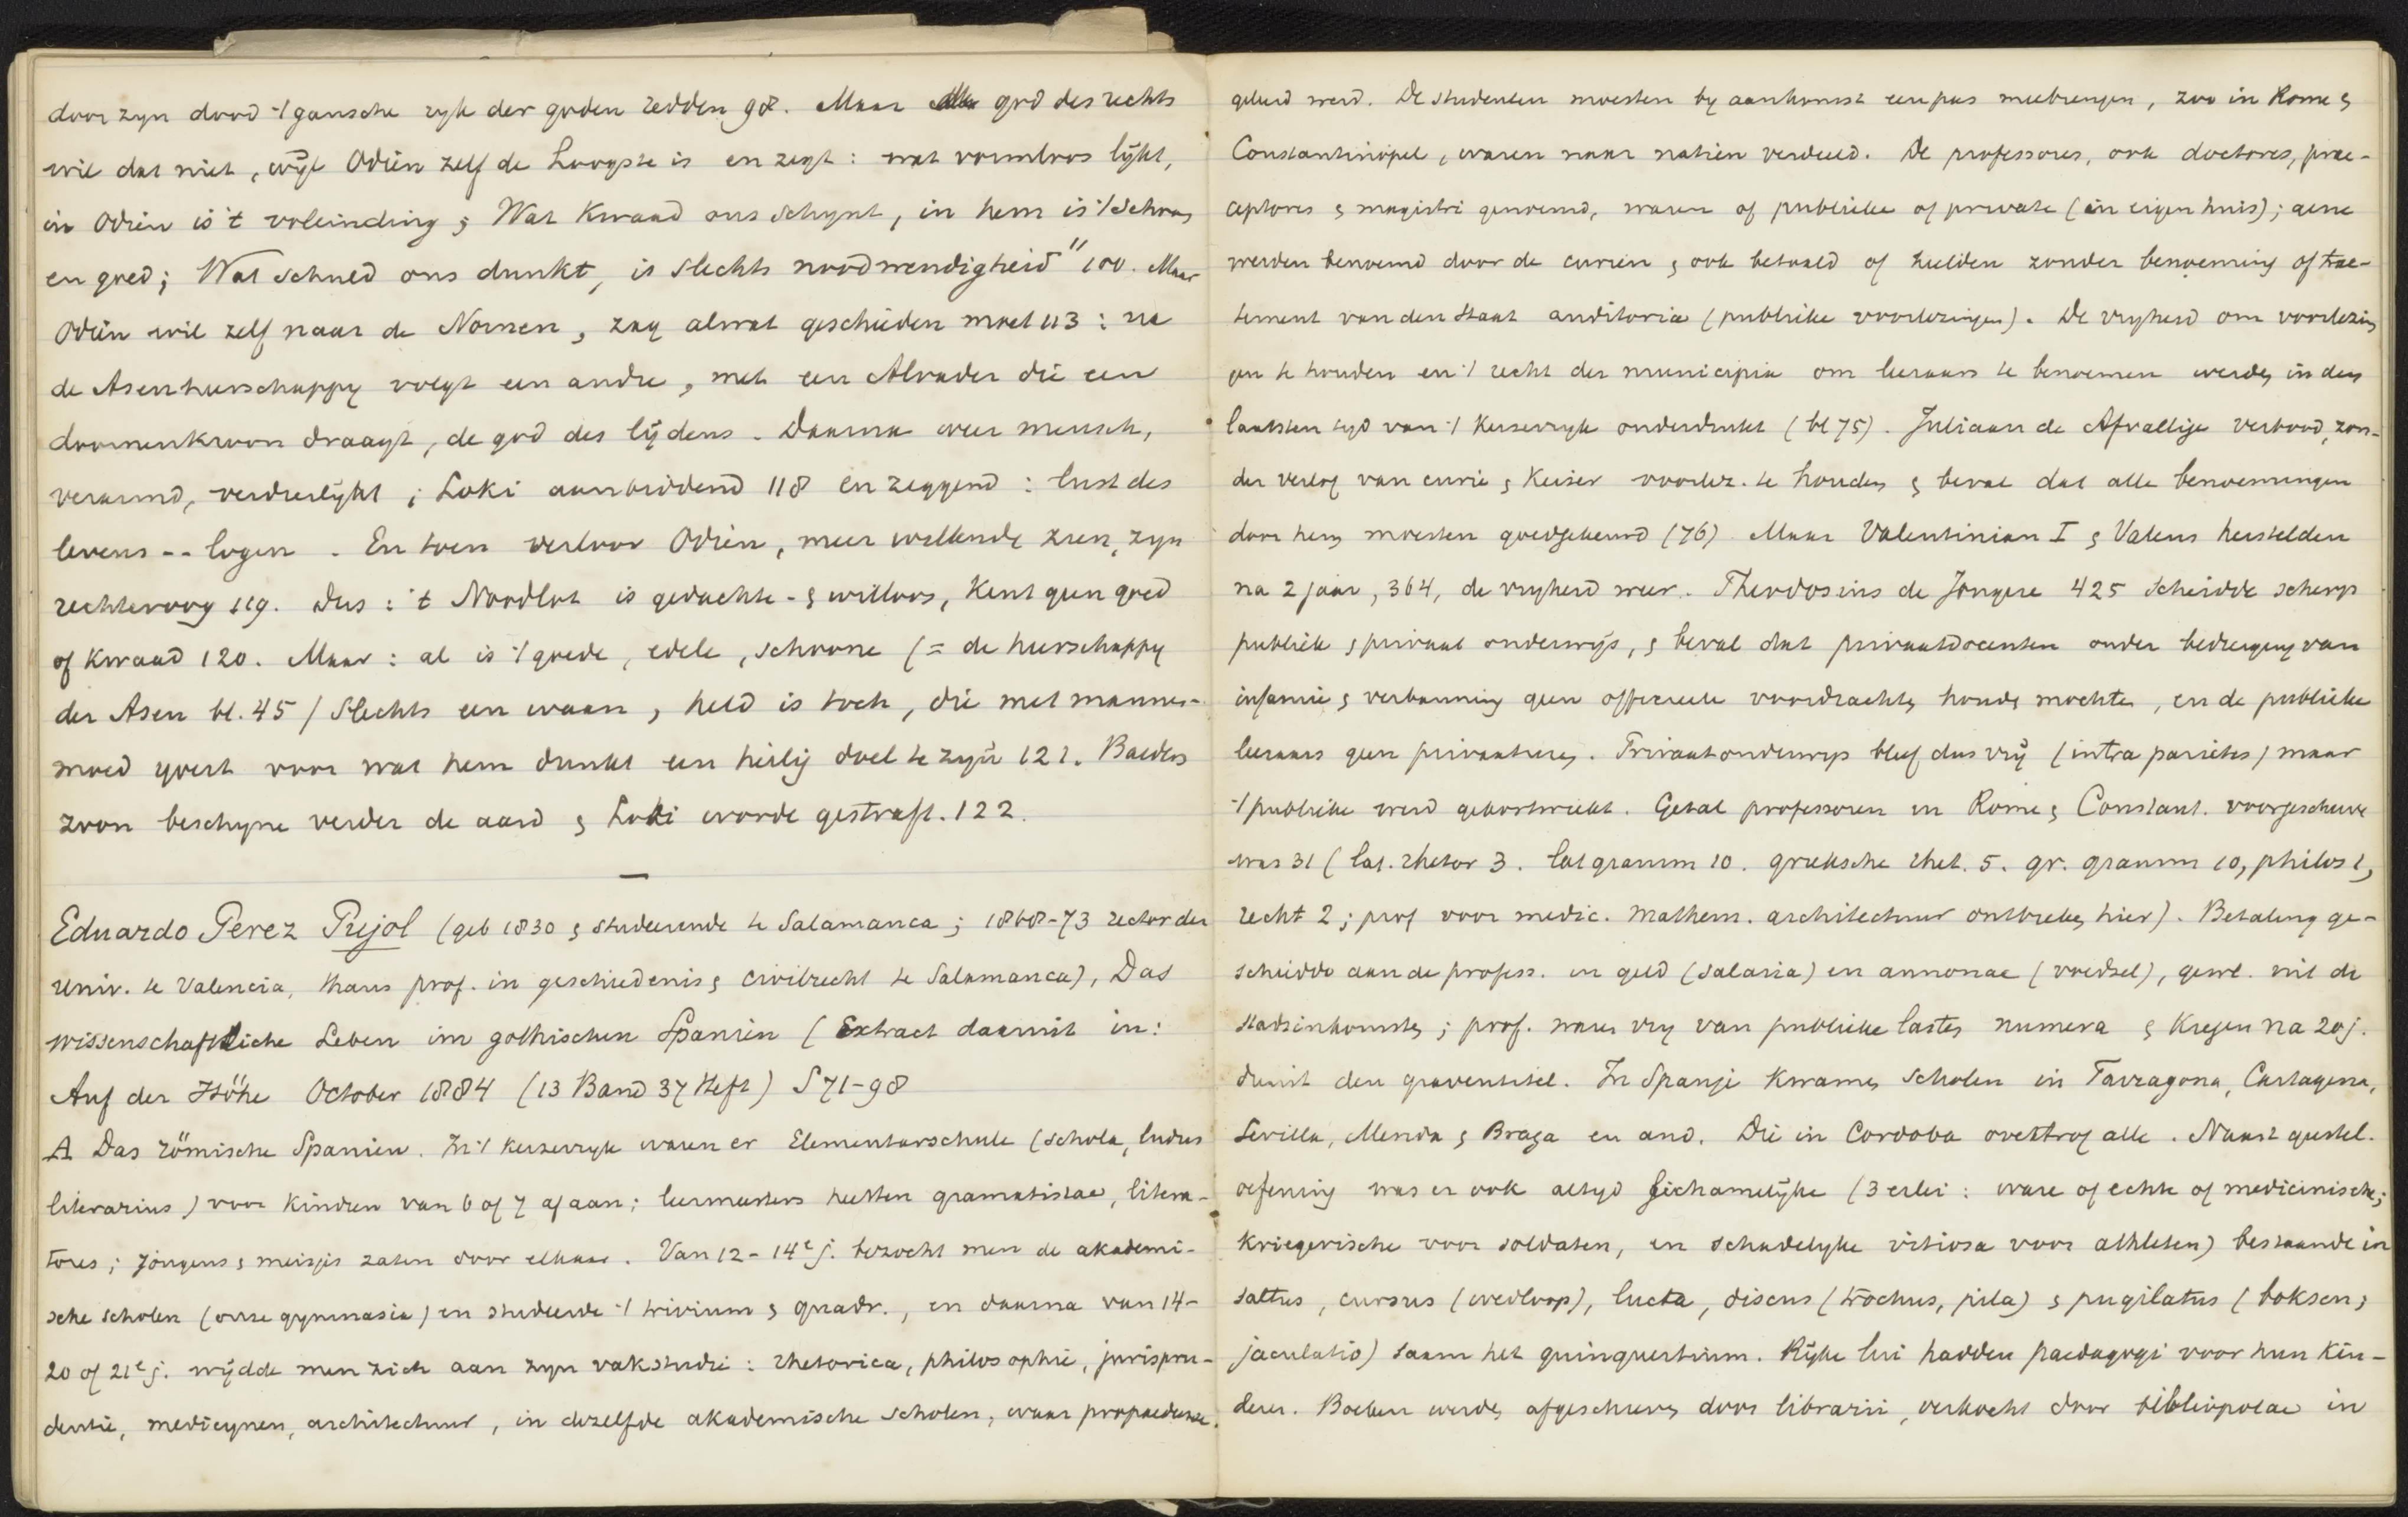 door zyn dood 't gansche ryk der goden redden 98. Maar god des rechts
wil dat niet, wijl Odin zelf de Hoogste is en zegt: wat vormloos lijkt,
in Odin is 't voleinding & Wat Kwaad ons schynt, in hem is 't schoon
en goed; Wat schuld ons dunkt, is slechts noodwendigheid" 100. Maar
Odin wil zelf naar de Nornen, zag alwat geschieden moet 113: na
de Asenheerschappy volgt een andre, met een Alvader die een
doornenkroon draagt, de god des lijdens. Daarna weer mensch,
verarmd, verdierlijkt; Loki aanbiddend 118 en zeggend: lust des
levens -- logen. En toen verloor Odin, meer willende zien, zyn
rechteroog 119. Dus: 't Noodlot is gedachte- & willoos, Kent geen goed
of Kwaad 120. Maar: al is 't goede, edele, schoone (= de heerschappy
der Asen bl. 45) slechts een waan, held is toch, die met mannes-
moed yvert voor wat hem dunkt een heilig doel te zyn 121. Balders
zoon beschyne verder de aard & Loki worde gestraft. 122.
Eduardo Perez Pujol (geb 1830 & studeerende te Salamanca; 1868-73 rector der
Univ. te Valencia, thans prof. in geschiedenis & civilrecht te Salamanca), Das
wissenschaftliche Leben im gothischen Spanien (Extract daaruit in:
Auf der Höhe October 1884 (13 Band 37 Heft) S 71-98
A Das römische Spanien. In 't keizerryk waren er Elementarschule (schola, ludus
literarius) voor Kinderen van 6 of 7 af aan; leermeesters heetten gramatistae, litera-
tores; Jongens & meisjes zaten door elkaar. Van 12-14e j. bezocht men de akademi-
sche scholen (onze gymnasia) en studeerde 't trivium & quadr., en daarna van 14-
20 of 21e j. wijdde men zich aan zyn vakstudie: rhetorica, philosophie, jurispru-
dentie, medicynen, architectuur, in dezelfde akademische scholen, waar propaedeuse
geleerd werd. De studenten moesten by aankomst een pas meebrengen, zoo in Rome &
Constantinopel, waren naar natiën verdeeld. De professores, ook doctores, prae-
ceptores & magistri genoemd, waren of publieke of private (in eigen huis); gene
werden benoemd door de curien & ook betaald of hielden zonder benoeming of trac-
tement van den Staat auditoria (publieke voorlezingen). De vryheid om voorlezing
en te houden en 't recht der municipia om leeraars te benoemen werden in den
laatsten tyd van 't Keizerryk onderdrukt (bl 75). Juliaan de Afvallige verbood, zon-
der verlof van curie & Keizer voorlez. te houden & beval dat alle benoemingen
door hem moesten goedgekeurd (76) Maar Valentinian I & Valens herstelden
na 2 jaar, 364, de vryheid weer. Theodosius de Jongere 425 scheidde scherp
publiek & privaat onderwijs, & beval dat privaatdocenten onder bedreiging van
infamie & verbanning geen officieele voordrachten houden mochten, en de publieke
leeraars geen privaatlessen. Privaatonderwys bleef dus vrij (intra parietes) maar
't publieke werd gekortwiekt. Getal professoren in Rome & Constant. voorgeschreven
was 31 (lat. rhetor 3. lat gramm 10. grieksche rhet. 5. gr. gramm 10, philos 1,
recht 2; prof voor medic. mathem. architectuur ontbreken hier). Betaling ge-
schiedde aan de profess. in geld (salaria) en annonae (voedsel), gewl. uit de
stadsinkomsten; prof. waren vry van publieke lasten numera & Kregen na 20 j.
dienst den graventitel. In Spanje Kwamen scholen in Tarragona, Cartagena,
Sevilla, Merida & Braga en and. Die in Cordoba overtrof alle. Naast geestel.
oefening was er ook altyd lichamelijke (3 erlei: ware of echte of medicinische;
kriegerische voor soldaten, en schadelyke vitiosa voor athleten) bestaande in
saltus, cursus (wedloop), lucta, discus (trochus, pila) & pugilatus (boksen;
jaculatio) saam het quinquertium. Rijke lui hadden paedagogi voor hun Kin-
deren. Boeken werden afgeschreven door librarii, verkocht door bibliopolae in